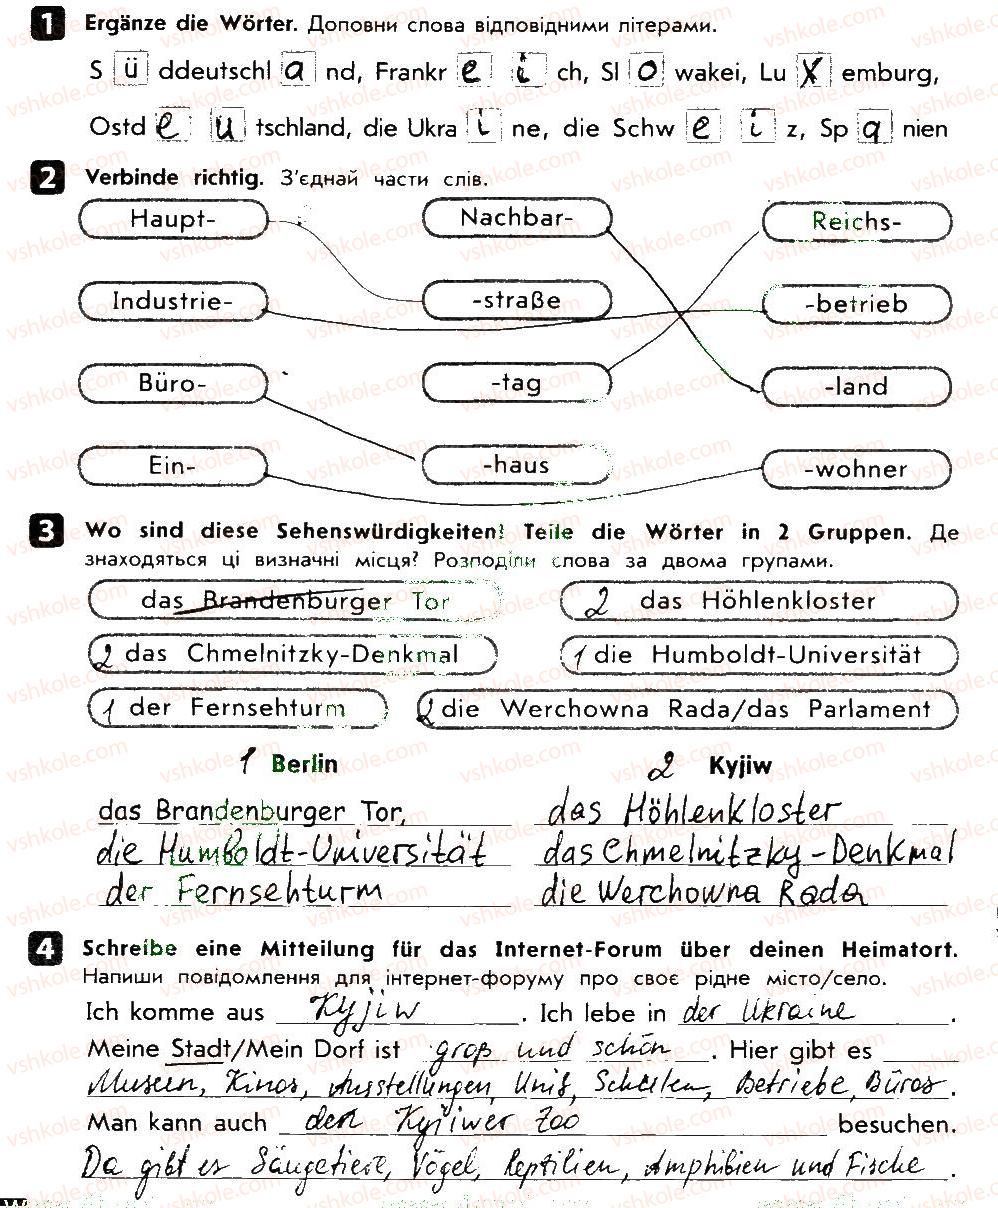 1 Ergänze die Wörter. Доповни слова відповідними літерами.
S ü ddeutschl a nd, Frankr e i ch, Sl o wakei, Lu x emburg,
Ostd e u tschland, die Ukra i ne, die Schw e i z, Sp a nien
2 Verbinde richtig. З'єднай части слів.
Haupt- Nachbar- Reichs-
Industrie- -straße -betrieb
Büro- -tag -land
Ein- -haus -wohner
3 Wo sind diese Sehenswürdigkeiten? Teile die Wörter in 2 Gruppen. Де
знаходяться ці визначні місця? Розподіли слова за двома групами.
das Brandenburger Tor 2 das Höhlenkloster
2 das Chmelnitzky-Denkmal 1 die Humboldt-Universität
1 der Fernsehturm 2 die Werchowna Rada/das Parlament
1 Berlin 2 Kyjiw
das Brandenburger Tor, das Höhlenkloster
die Humboldt-Universität das Chmelnitzky-Denkmal
der Fernsehturm die Werchowna Rada
4 Schreibe eine Mitteilung für das Internet-Forum über deinen Heimatort.
Напиши повідомлення для інтернет-форуму про своє рідне місто/село.
Ich komme aus Kyjiw. Ich lebe in der Ukraine.
Meine Stadt/Mein Dorf ist groß und schön. Hier gibt es
Museen, Kinos, Ausstellungen, Unis, Schulen, Betriebe, Büros.
Man kann auch den Kyjiwer Zoo besuchen.
Da gibt es Säugetiere, Vögel, Reptilien, Amphibien und Fische.